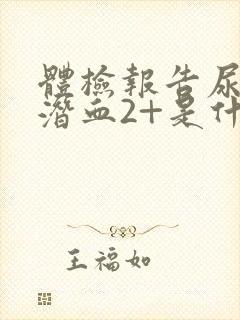 體檢報告尿
潛血2+是什
王福如